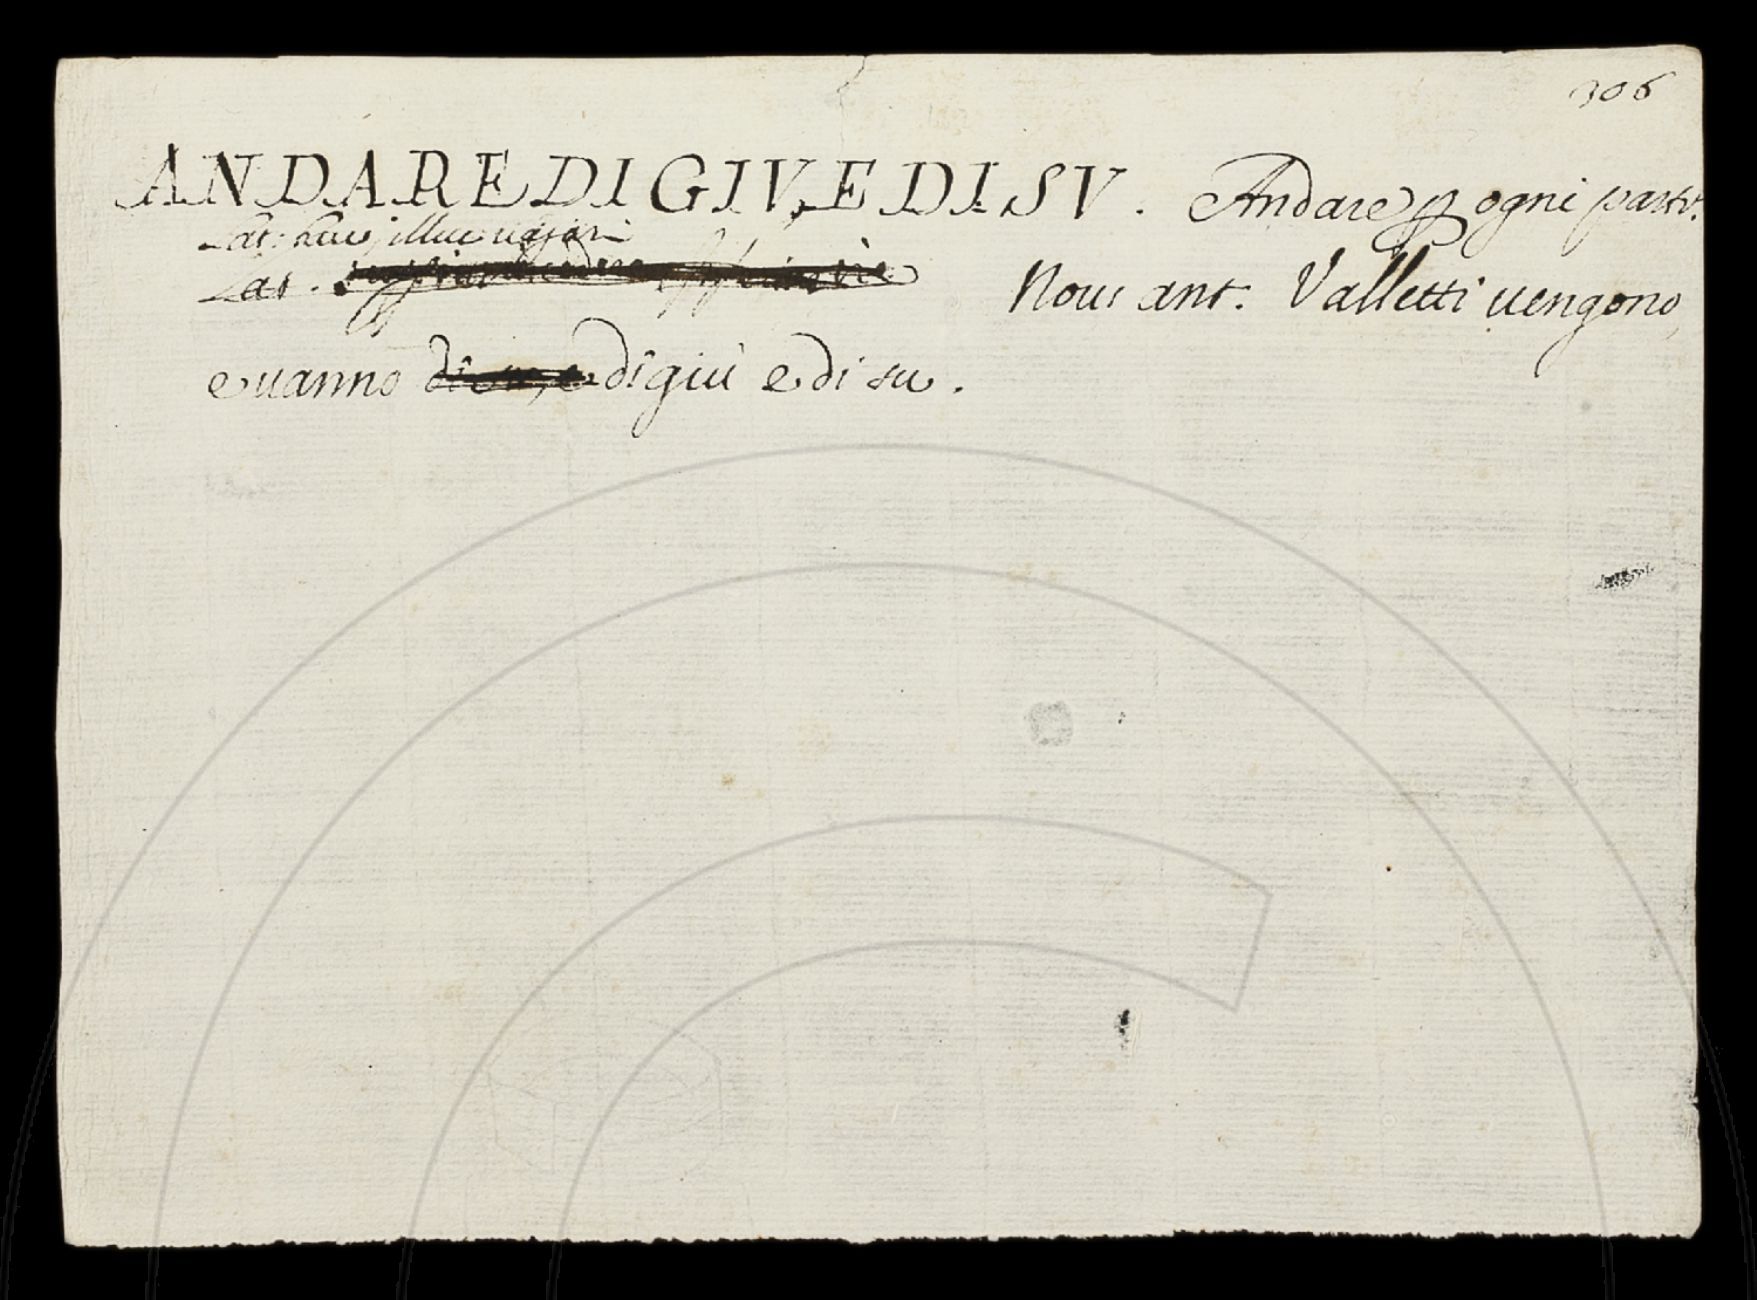 306
ANDARE DI GIV, E DI SV. Andare p ogni parte.
Lat. huc, illuc uagari
Lat. Nou: ant. Valletti uengono,
e uanno di su, e di giù e di su.